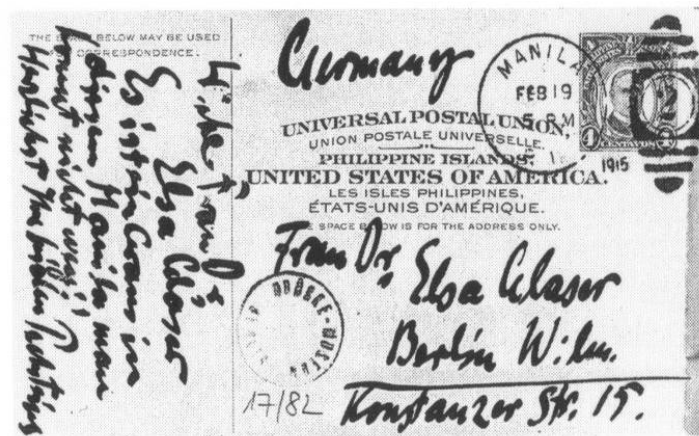 THE SPACE BELOW MAY BE USED
FOR CORRESPONDENCE.
Liebe Frau Dr.
Elsa Glaser
Es ist ein Graus in
diesem Manila man
kommt nicht weg!
Herzlichst Ihre beiden
Germany
MANILA
FEB 19
5 PM
1915
UNIVERSAL POSTAL UNION,
UNION POSTALE UNIVERSELLE.
PHILIPPINE ISLANDS,
UNITED STATES OF AMERICA.
LES ISLES PHILIPPINES,
ÉTATS-UNIS D'AMÉRIQUE.
THE SPACE BELOW IS FOR THE ADDRESS ONLY.
Frau Dr.
Elsa Glaser
Berlin Wilm.
Konstanzer Str. 15.
BRÜCKE-MUSEUM
17/82